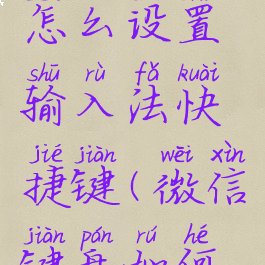 怎么设置
shū rù fǎ kuài
输入法快
jié jiàn wēi xìn
捷键(微信
jiàn pán rú hé
键盘如何